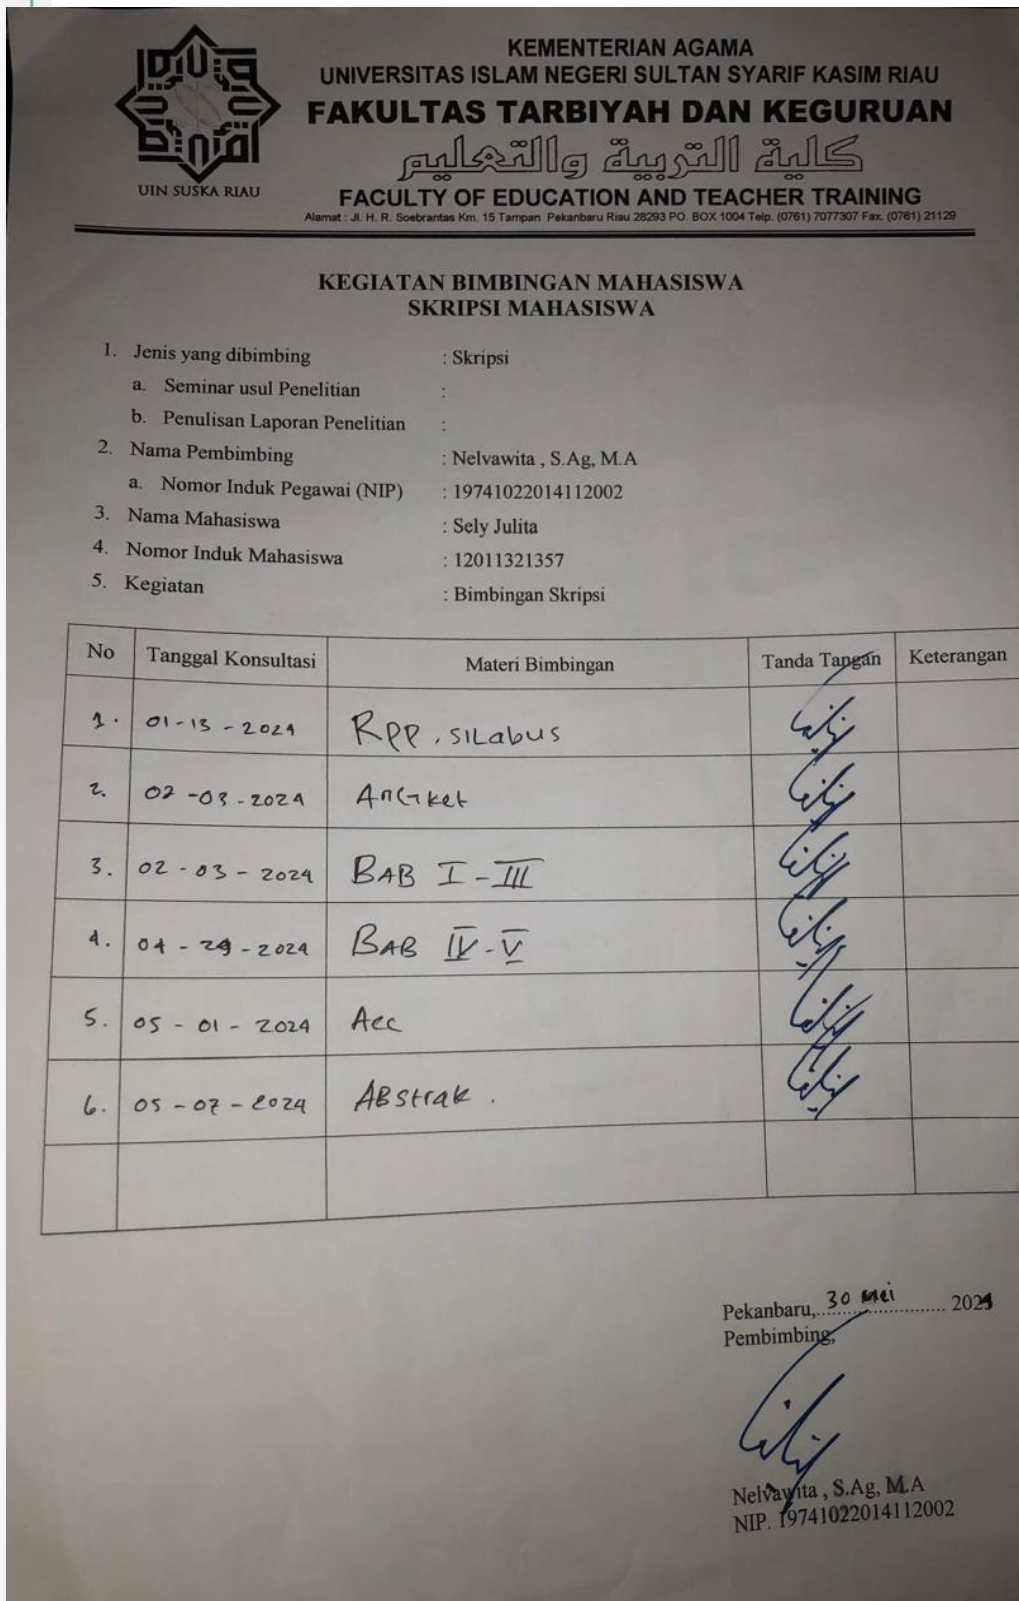 KEMENTERIAN AGAMA
UNIVERSITAS ISLAM NEGERI SULTAN SYARIF KASIM RIAU
FAKULTAS TARBIYAH DAN KEGURUAN
كلية التربية والتعليم
FACULTY OF EDUCATION AND TEACHER TRAINING
Alamat : Jl. H. R. Soebrantas Km. 15 Tampan Pekanbaru Riau 28293 PO. BOX 1004 Telp. (0761) 7077307 Fax. (0761) 21129
UIN SUSKA RIAU
KEGIATAN BIMBINGAN MAHASISWA
SKRIPSI MAHASISWA
1. Jenis yang dibimbing : Skripsi
a. Seminar usul Penelitian :
b. Penulisan Laporan Penelitian :
2. Nama Pembimbing : Nelvawita , S.Ag, M.A
a. Nomor Induk Pegawai (NIP) : 19741022014112002
3. Nama Mahasiswa : Sely Julita
4. Nomor Induk Mahasiswa : 12011321357
5. Kegiatan : Bimbingan Skripsi
No Tanggal Konsultasi Materi Bimbingan Tanda Tangan Keterangan
1. 01-13-2024 RPP, SILabus
2. 02-03-2024 AnGket
3. 02-03-2024 BAB I-III
4. 04-29-2024 BAB IV-V
5. 05-01-2024 Acc
6. 05-07-2024 ABstrak.
Pekanbaru, 30 Mei 2024
Pembimbing,
Nelvawita , S.Ag, M.A
NIP. 19741022014112002